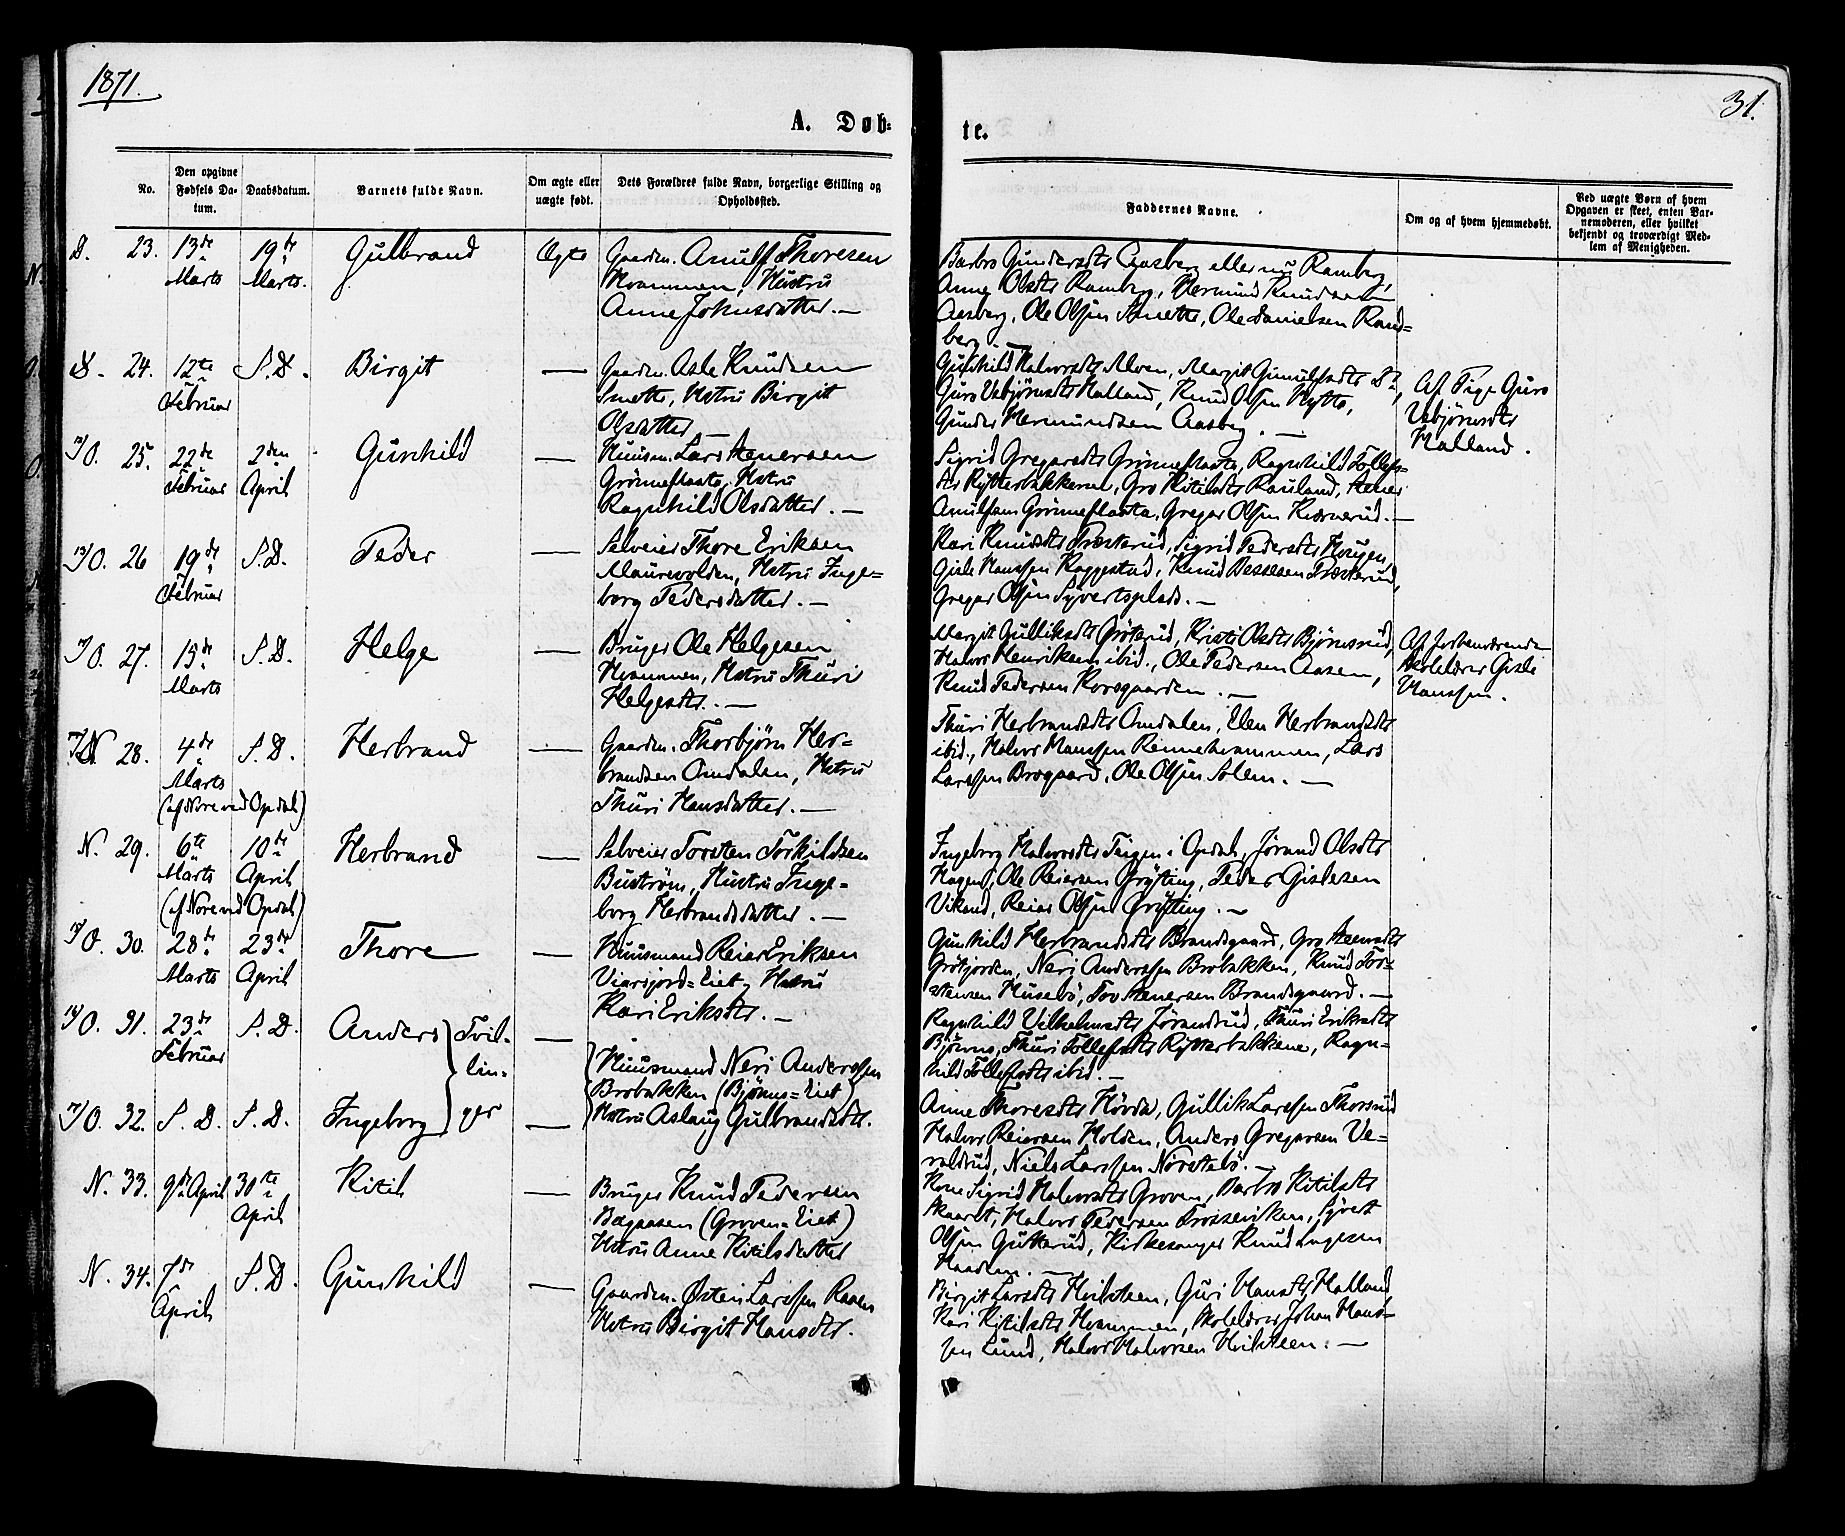 1871.
31.
A. Døb=
te.
No.
Den opgivne Fødsels Da-tum.
Daabsdatum.
Barnets fulde Navn.
Om ægte eller uægte født.
Dets Forældres fulde Navn, borgerlige Stilling og Opholdssted.
Faddernes Navne.
Om og af hvem hjemmedøbt.
Ved uægte Børn af hvem Opgaven er skeet, enten Bar-nemoderen, eller hvilket bekjendt og troværdigt Med-lem af Menigheden.
D. 23. 13de Marts 19de Marts. Gulbrand Ægte
Gaardm. Anulf Thoresen
Kvammen, Hustru
Anne Johnsdatter. —
Barbro Gundersdtr Aasberg eller nu Ramberg,
Anne Olsdtr Ramberg, Hermund Knudsen
Aasberg, Ole Olsen Smette, Ole Danielsen Ram=
berg. —
D. 24. 12te Februar S. D. Birgit —
Gaardm. Asle Knudsen
Smette, Hstru Birgit
Olsdatter —
Gunhild Halvorsdtr Moen, Margit Gunulfsdtr
Guro Vebjørnsdtr Halland, Knud Olsen Hytte,
Gunder Hermundsen Aasberg. —
Af Pige Guro
Vebjørnsdtr
Halland.
O. 25. 22de Februar 2den April Gunhild —
Huusm. Lars Stenersen
Grønneflaata, Hstru
Ragnhild Olsdatter. —
Sigrid Gregarsdtr Grønneflaata, Ragnhild Tollefs=
dtr Rytterbakkene, Gro Kitilsdtr Rauland, Stener
Anulfsen Grønneflaata, Gregar Olsen Kjernerud. —
O. 26 19de Februar S. D. Peder —
Selveier Thore Eriksen
Maurevolden, Hstru Inge=
borg Pedersdatter. —
Kari Knudsdtr Præsterud, Sigrid Pedersdtr Haugen,
Gisle Hanssen Kaggestad, Knud Bessesen Præsterud,
Gregar Olsen Syvertsplads. —
O. 27. 15de Marts S. D. Helge —
Bruger Ole Helgesen
Kvammen, Hstru Thuri
Helgesdtr. —
Margit Gulliksdtr Grøterud, Kristi Olsdtr Bjørnsrud,
Halvor Henriksen ibid., Ole Pedersen Aasen,
Knud Pedersen Korsgaarden. —
Skolelærer Gisle
Hanssen.
N. 28. 4de Marts S. D. Herbrand —
(af Nore ved Opdal)
Gaardm. Thorbjørn Her=
brandsen Amdalen, Hstru
Thuri Hansdatter. —
Thuri Herbrandsdtr Amdalen, Elen Herbrandsdtr
ibid., Halvor Hanssen Rennehvammen, Lars
Larssen Brogaard, Ole Olsen Solem. —
N. 29. 6te Marts 10de April Herbrand —
(af Nore ved Opdal)
Selveier Torsten Torkildsen
Buström, Hustru Inge=
borg Herbrandsdatter. —
Ingeborg Halvorsdtr Teigen i Opdal, Jørand Olsdtr
Hagen, Ole Reiersen Grøtting, Peder Gislesen
Vikand, Reier Olsen Grøtting. —
O. 30. 28de Marts 23de April Thore —
Huusmand Reier Eriksen
Vierjord=Eiet, Hstru
Kari Eriksdtr. —
Gunhild Herbrandsdtr Brandsgaard, Gro Steensdtr
Grøtjorden, Neri Anderssen Brobakken, Knud Tor=
stensen Husebö, Tov Stenersen Brandsgaard. —
O. 31. 23de Februar S. D. Anders } Tvil=
lin=
ger —
{ Huusmand Neri Anderssen
Brobakken (Bjønnes=Eiet)
Hstru Aslaug Gulbrandsdtr.
Ragnhild Vilhelmsdtr Jørandrud, Thuri Eriksdtr
Bjønnes, Thuri Tollefsdtr Rytterbakkene, Ragn=
hild Tollefsdtr ibid. —
O. 32. S. D. S. D. Ingeborg —
Anne Thoresdtr Hövda, Gullik Larssen Thorsrud
Halvor Reiersen Holden, Anders Gregarsen Ve=
raldrud, Niels Larssen Nørstebö. —
N. 33. 9de April 30te April Kitil —
Bruger Knud Pedersen
Bægaasen (Groven=Eiet)
Hstru Anne Kitilsdatter
Kone Sigrid Halvorsdtr Groven, Barbro Kitilsdtr
Skaaret, Halvor Pedersen Fosseviken, Syvert
Olsen Gutterud, Kirkesanger Knud Lagesen
Haadem. —
N. 34. 7de April S. D. Gunhild —
Gaardm. Østen Larssen Raaen
Hstru Birgit Hansdtr.
Birgit Larsdtr Hvilsteen, Guri Hansdtr Halland
Kari Kitilsdtr Kvammen, Skolelærer Johan Hans=
sen Lund, Halvor Halvorsen Hvilsteen. —